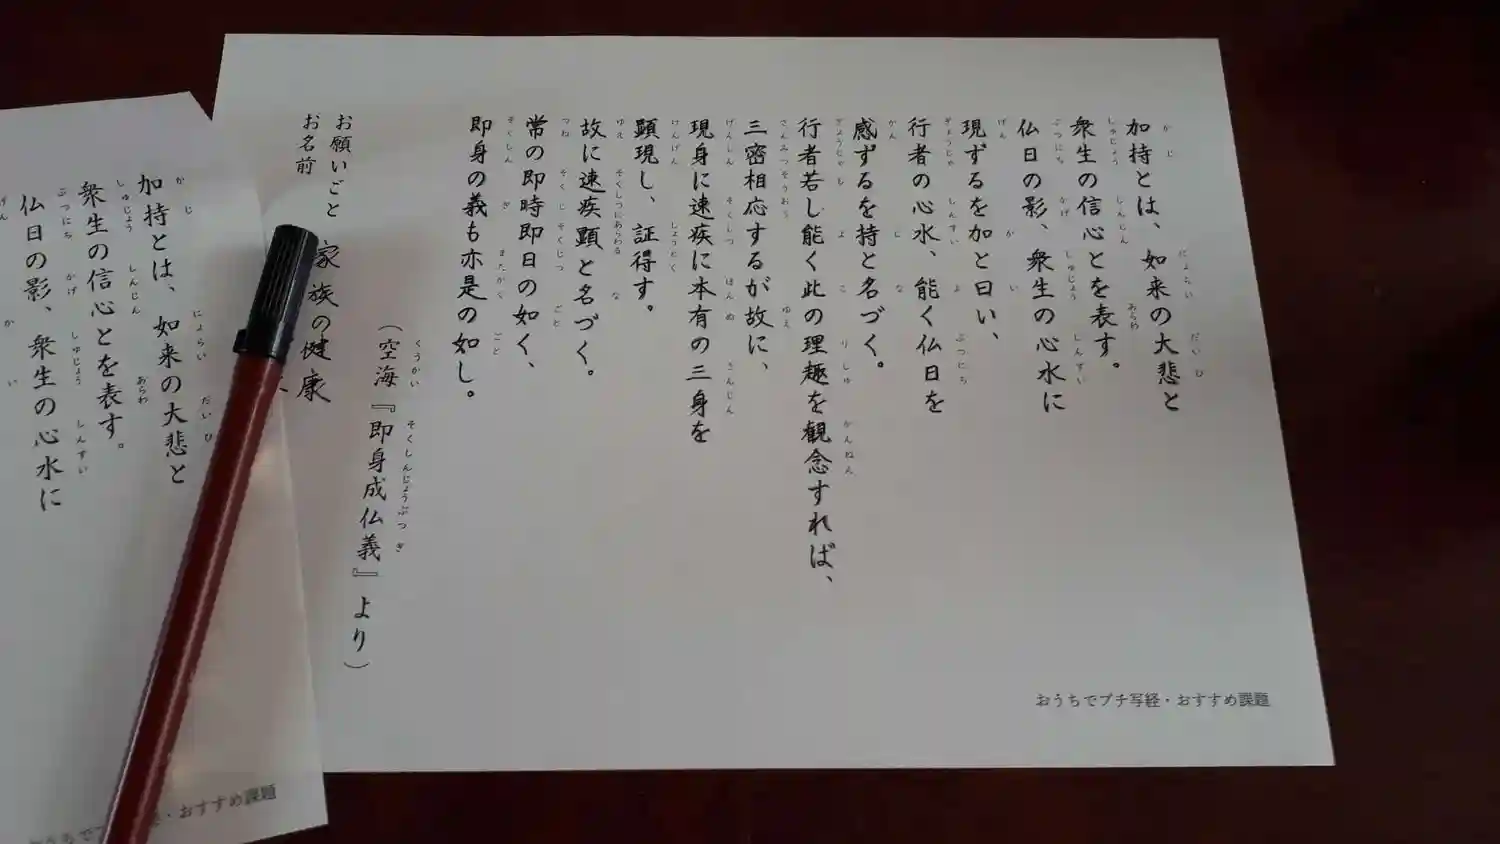 加持とは、如来の大悲と
衆生の信心とを表す。
仏日の影、衆生の心水に
現ずるを加と曰い、
行者の心水、能く仏日を
感ずるを持と名づく。
行者若し能く此の理趣を観念すれば、
三密相応するが故に、
現身に速疾に本有の三身を
顕現し、証得す。
故に速疾顕と名づく。
常の即時即日の如く、
即身の義も亦是の如し。
（空海『即身成仏義』より）
お願いごと 家族の健康
お名前
おうちでプチ写経・おすすめ課題
加持とは、如来の大悲と
衆生の信心とを表す。
仏日の影、衆生の心水に
・おすすめ課題